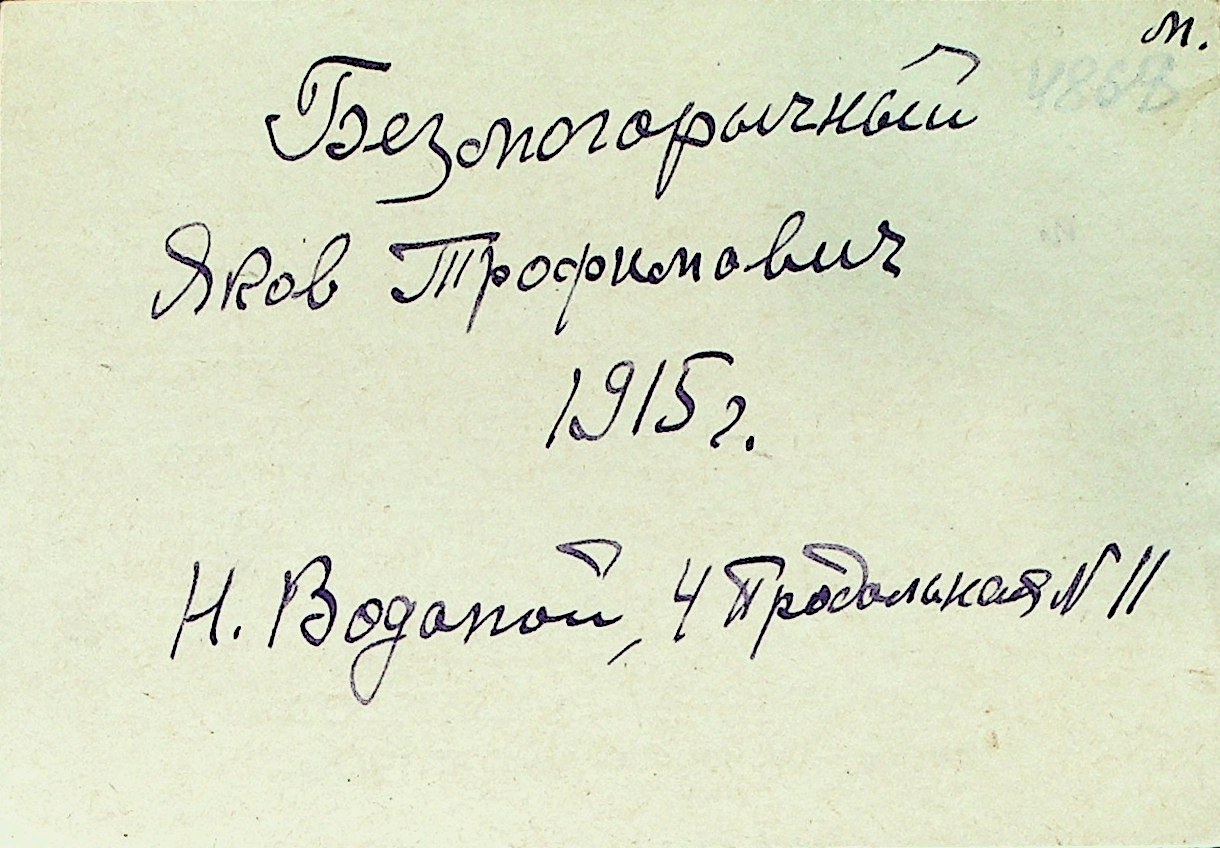 м.
Безмогорычный
Яков Трофимович
1915 г.
Н. Водопой, 4 Продольная N 11